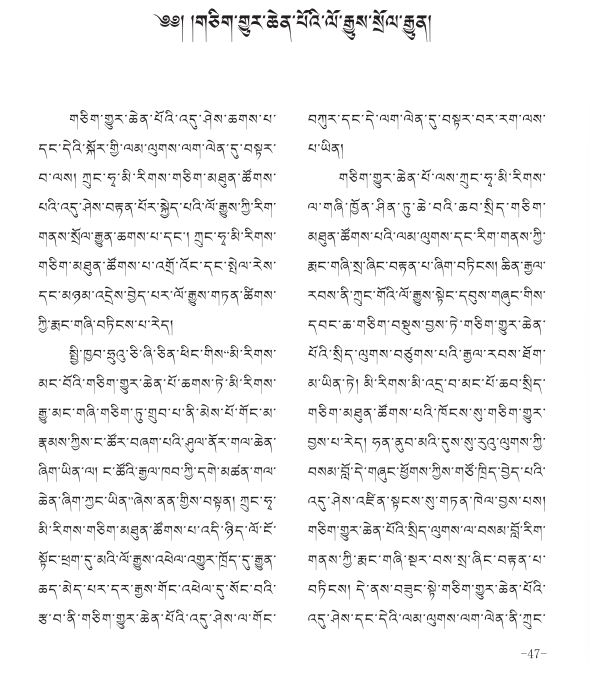 ༄༅། །གཅིག་གྱུར་ཆེན་པོའི་ལོ་རྒྱུས་སྲོལ་རྒྱུན།
གཅིག་གྱུར་ཆེན་པོའི་འདུ་ཤེས་ཆགས་པ་
དང་དེའི་སྐོར་གྱི་ལམ་ལུགས་ལག་ལེན་དུ་བསྟར་
བ་ལས། ཀྲུང་ཧྭ་མི་རིགས་གཅིག་མཐུན་ཚོགས་
པའི་འདུ་ཤེས་བརྟན་པོར་སྐྱེད་པའི་ལོ་རྒྱུས་ཀྱི་རིག་
གནས་སྲོལ་རྒྱུན་ཆགས་པ་དང་། ཀྲུང་ཧྭ་མི་རིགས་
གཅིག་མཐུན་ཚོགས་པ་འགྲོ་འོང་དང་སྤེལ་རེས་
དང་མཉམ་འདྲེས་བྱེད་པར་ལོ་རྒྱུས་གཏན་ཚིགས་
ཀྱི་རྨང་གཞི་བཏིངས་པ་རེད།
སྤྱི་ཁྱབ་ཧྲུའུ་ཅི་ཞི་ཅིན་ཕིང་གིས“མི་རིགས་
མང་པོའི་གཅིག་གྱུར་ཆེན་པོ་ཆགས་ཏེ་མི་རིགས་
རྒྱུ་མང་གཞི་གཅིག་ཏུ་གྲུབ་པ་ནི་མེས་པོ་གོང་མ་
རྣམས་ཀྱིས་ང་ཚོར་བཞག་པའི་ཤུལ་ནོར་གལ་ཆེན་
ཞིག་ཡིན་ལ། ང་ཚོའི་རྒྱལ་ཁབ་ཀྱི་དགེ་མཚན་གལ་
ཆེན་ཞིག་ཀྱང་ཡིན”ཞེས་ནན་གྱིས་བསྟན། ཀྲུང་ཧྭ་
མི་རིགས་གཅིག་མཐུན་ཚོགས་པ་འདི་ཉིད་ལོ་ངོ་
སྟོང་ཕྲག་དུ་མའི་ལོ་རྒྱུས་འཕེལ་འགྱུར་ཁྲོད་དུ་རྒྱུན་
ཆད་མེད་པར་དར་རྒྱས་གོང་འཕེལ་དུ་སོང་བའི་
རྩ་བ་ནི་གཅིག་གྱུར་ཆེན་པོའི་འདུ་ཤེས་ལ་གོང་
བཀུར་དང་དེ་ལག་ལེན་དུ་བསྟར་བར་རག་ལས་
པ་ཡིན།
གཅིག་གྱུར་ཆེན་པོ་ལས་ཀྲུང་ཧྭ་མི་རིགས་
ལ་གཞི་ཁྱོན་ཤིན་ཏུ་ཆེ་བའི་ཆབ་སྲིད་གཅིག་
མཐུན་ཚོགས་པའི་ལམ་ལུགས་དང་རིག་གནས་ཀྱི་
རྨང་གཞི་སྲ་ཞིང་བརྟན་པ་ཞིག་བཏིངས། ཆིན་རྒྱལ་
རབས་ནི་ཀྲུང་གོའི་ལོ་རྒྱུས་སྟེང་དབུས་གཞུང་གིས་
དབང་ཆ་གཅིག་བསྡུས་བྱས་ཏེ་གཅིག་གྱུར་ཆེན་
པོའི་སྲིད་ལུགས་བཙུགས་པའི་རྒྱལ་རབས་ཐོག་
མ་ཡིན་ཏེ། མི་རིགས་མི་འདྲ་བ་མང་པོ་ཆབ་སྲིད་
གཅིག་མཐུན་ཚོགས་པའི་ཁོངས་སུ་གཅིག་གྱུར་
བྱས་པ་རེད། ཧན་ནུབ་མའི་དུས་སུ་རུའུ་ལུགས་ཀྱི་
བསམ་བློ་དེ་གཞུང་ཕྱོགས་ཀྱིས་གཙོ་ཁྲིད་བྱེད་པའི་
འདུ་ཤེས་འཛིན་སྟངས་སུ་གཏན་ཁེལ་བྱས་པས།
གཅིག་གྱུར་ཆེན་པོའི་སྲིད་ལུགས་ལ་བསམ་བློ་རིག་
གནས་ཀྱི་རྨང་གཞི་སྔར་བས་སྲ་ཞིང་བརྟན་པ་
བཏིངས། དེ་ནས་བཟུང་སྟེ་གཅིག་གྱུར་ཆེན་པོའི་
འདུ་ཤེས་དང་དེའི་ལམ་ལུགས་ལག་ལེན་ནི་ཀྲུང་
-47-